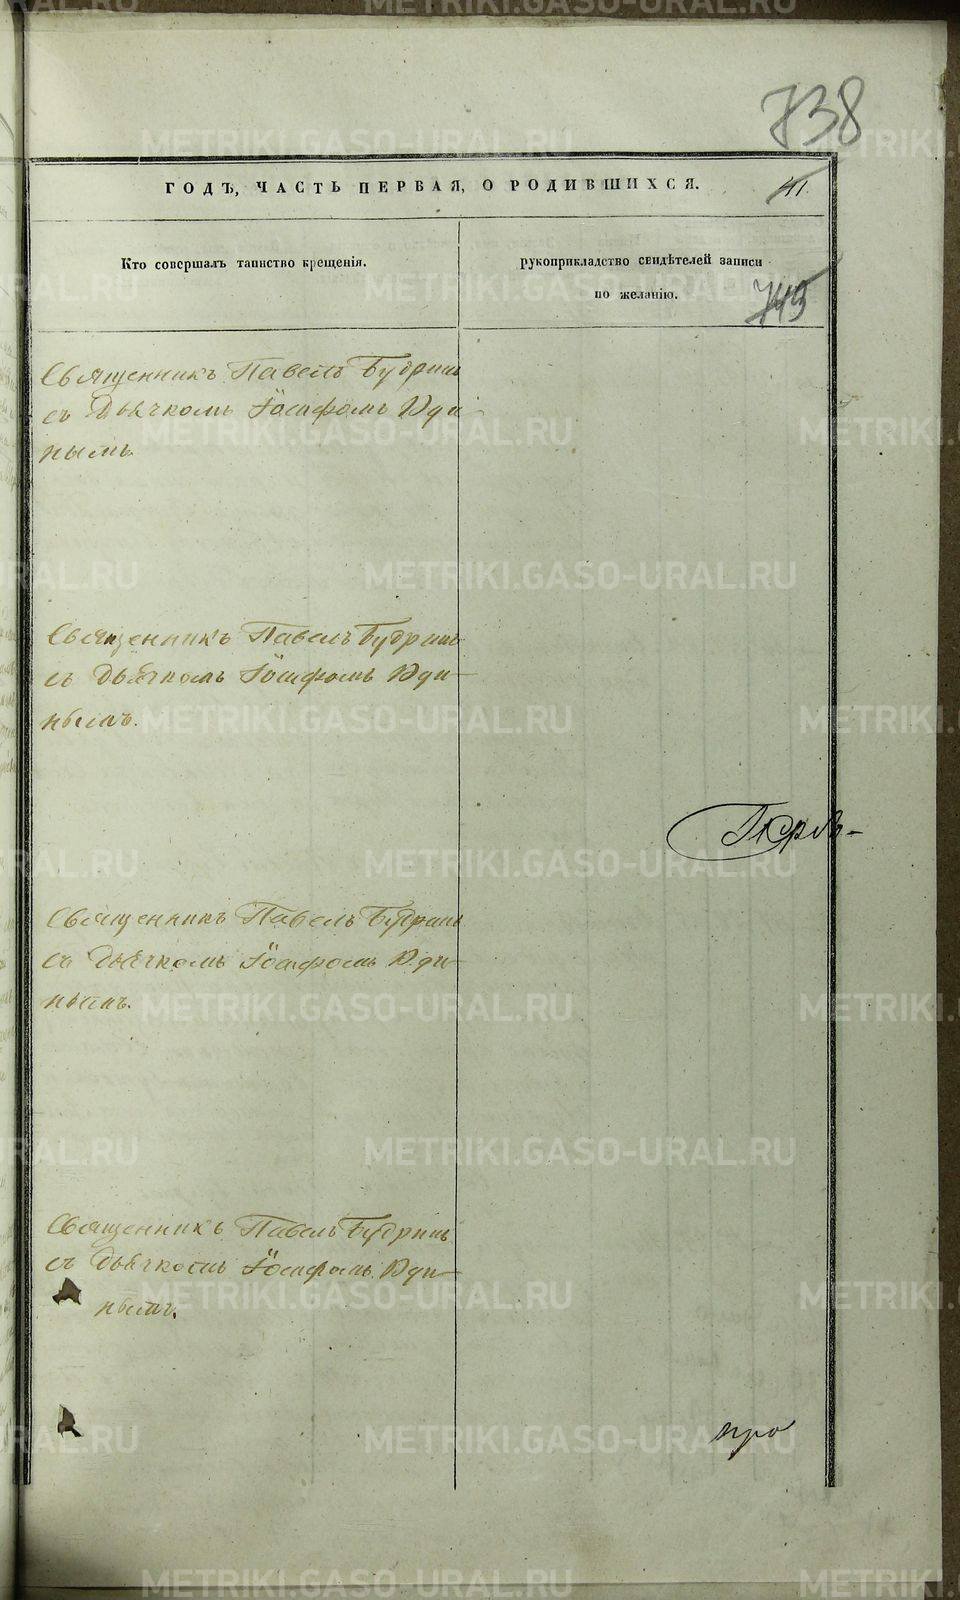 738
ГОДЪ, ЧАСТЬ ПЕРВАЯ, О РОДИВШИХСЯ.
41.
Кто совершалъ таинство крещенія.
рукоприкладство свидѣтелей записи
по желанію.
745
Священникъ Павелъ Будринъ
съ Дьячкомъ Іосифомъ Юди
нымъ.
Священникъ Павелъ Будринъ
съ Дьячкомъ Іосифомъ Юди-
нымъ.
Священникъ Павелъ Будринъ
съ Дьячкомъ Іосифомъ Юди-
нымъ.
Священникъ Павелъ Будринъ
съ Дьячкомъ Іосифомъ Юди-
нымъ.
про
METRIKI.GASO-URAL.RU